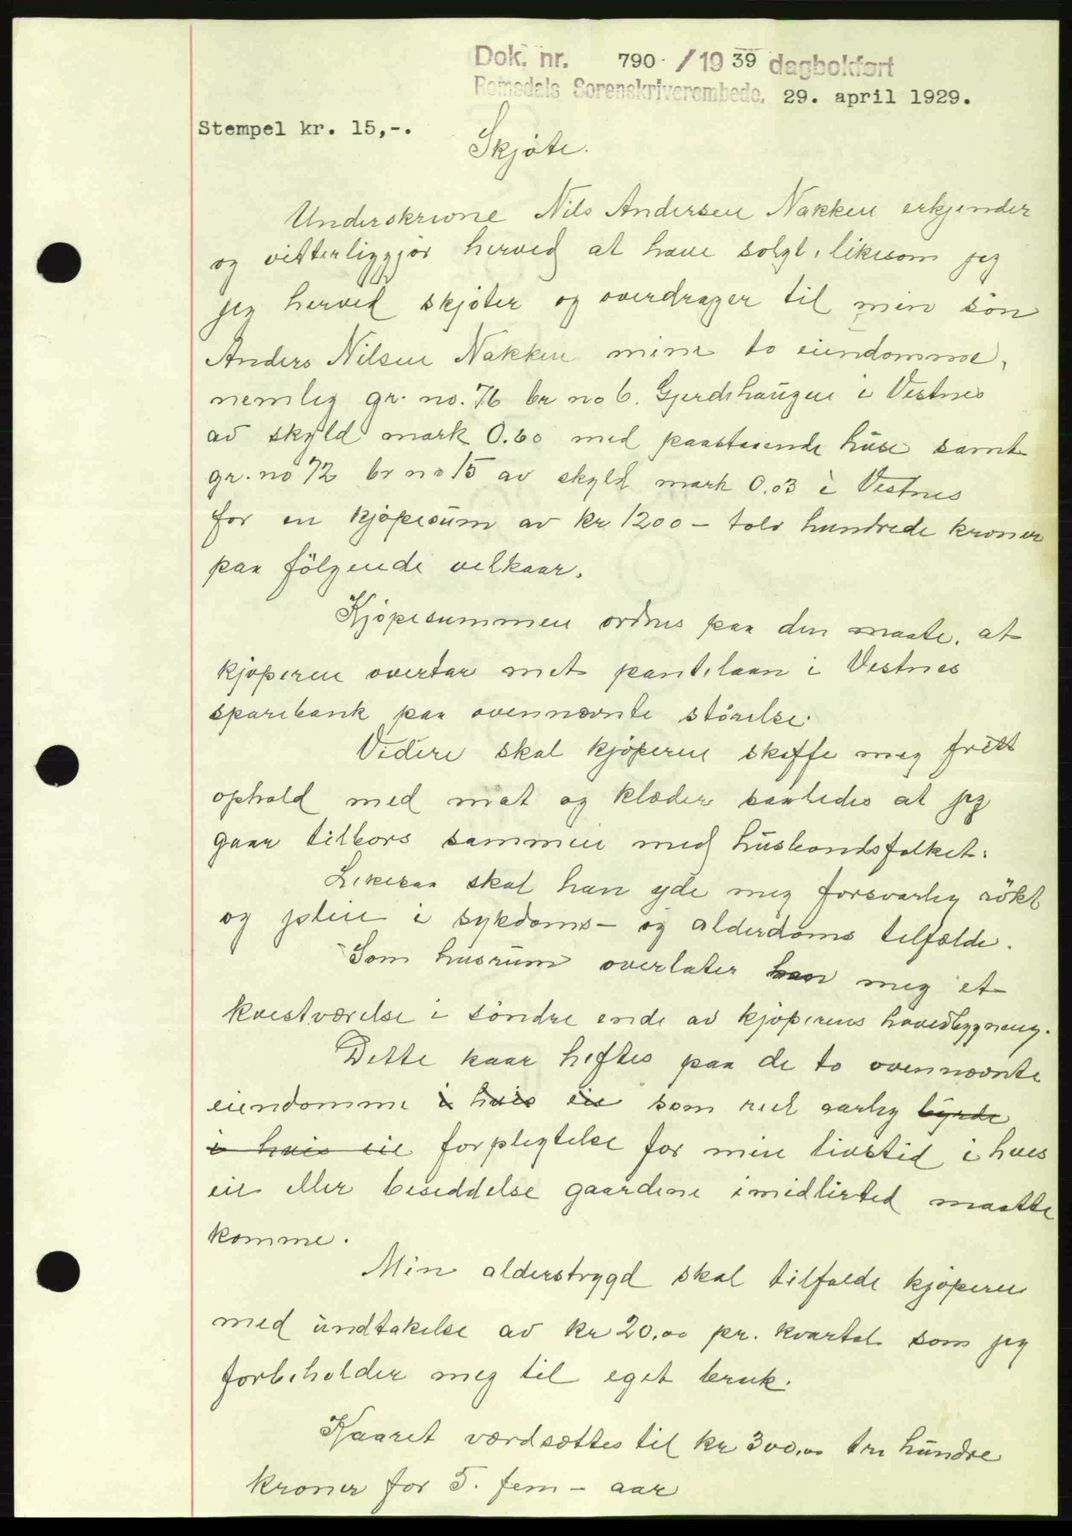 Dok. nr. 790 / 1939 dagbokført
Romsdals Sorenskriverembede. 29. april 1929.
Stempel kr. 15,-.
Skjøte.
Underskrevne Nils Andersen Nakken erkjender
og vitterliggjør herved at have solgt, likesom jeg
jeg herved skjøter og overdrager til min søn
Anders Nilsen Nakken mine to eiendomme,
nemlig gr. no. 76 br no 6. Gjerdshaugen i Vestnes
av skyld mark 0.60 med paastaaende huse samt
gr. no 72 br no 15 av skyld mark 0.03 i Vestnes
for en kjøpesum av kr 1200 - tolv hundrede kroner
paa følgende velkaar.
Kjøpesummen ordnes paa den maate, at
kjøperen overtar mit pantelaan i Vestnes
sparebank paa ovennævnte størelse.
Videre skal kjøperen skaffe meg fritt
ophold med mat og klæder saaledes at jeg
gaar tilbors sammen med husbondsfolket.
Likesaa skal han yde meg forsvarlig røkt
og pleie i sykdoms- og alderdoms tilfælde.
Som husrum overlater han meg et
kvestværelse i søndre ende av kjøperens hovedbygning.
Dette kaar heftes paa de to ovennævnte
eiendomme i hvis eie som reel aarlig byrde
i hvis eie forpligtelse for min livstid i hves
eie eller besiddelse gaardene imidlirted maatte
komme.
Min alderstrygd skal tilfalde kjøperen
med undtakelse av kr 20.00 pr. kvartal som jeg
forbeholder meg til eget bruk.
Kaaret værdsættes til kr 300.00 tre hundre
kroner for 5. fem - aar